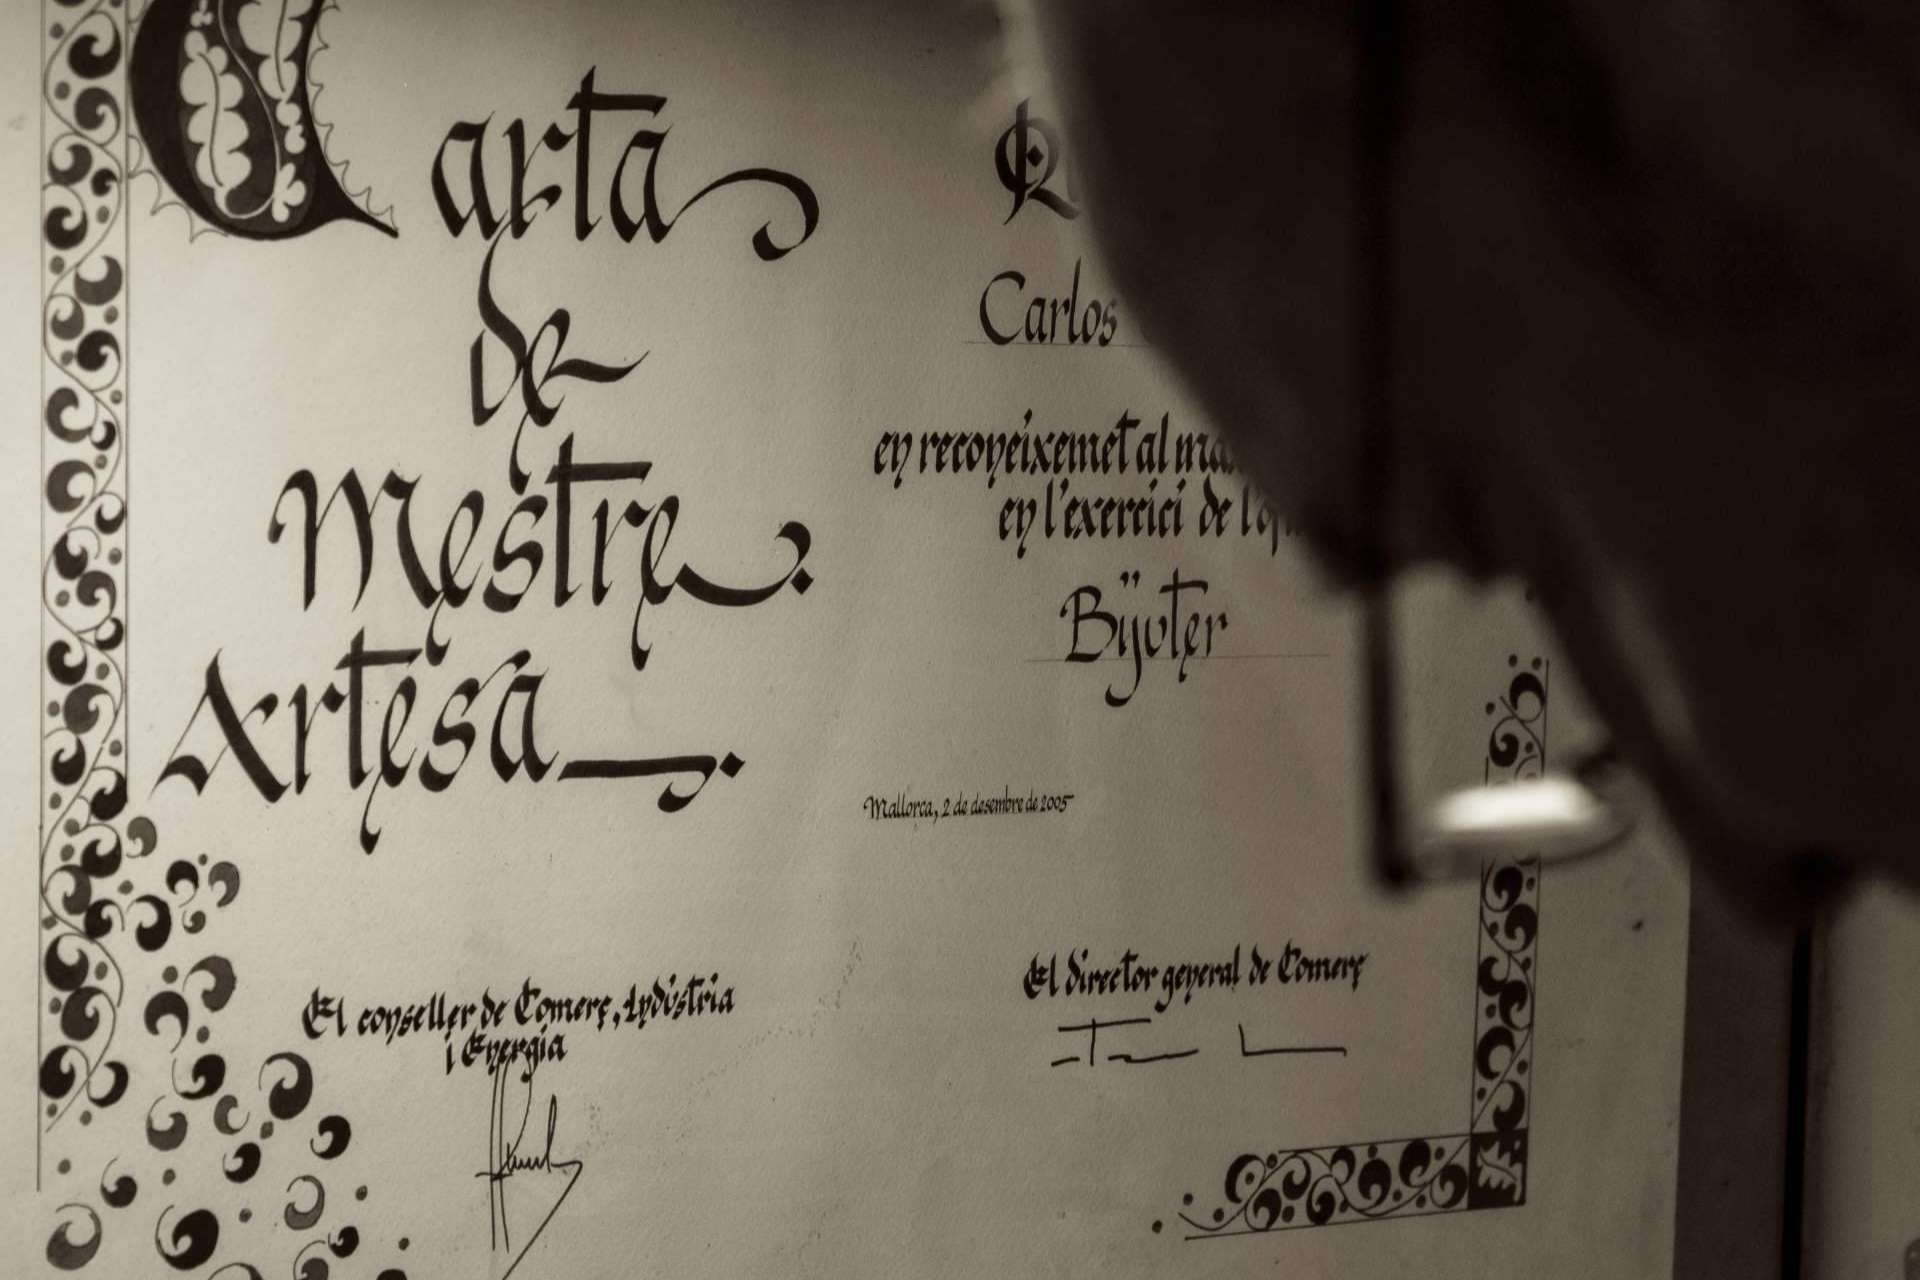 Carta
de
Mestre
Artesà
Carlos
en reconeixemet al
en l'exercici de
Bijuter
Mallorca, 2 de desembre de 2005
El conseller de Comerç, Indústria
i Energia
El director general de Comerç